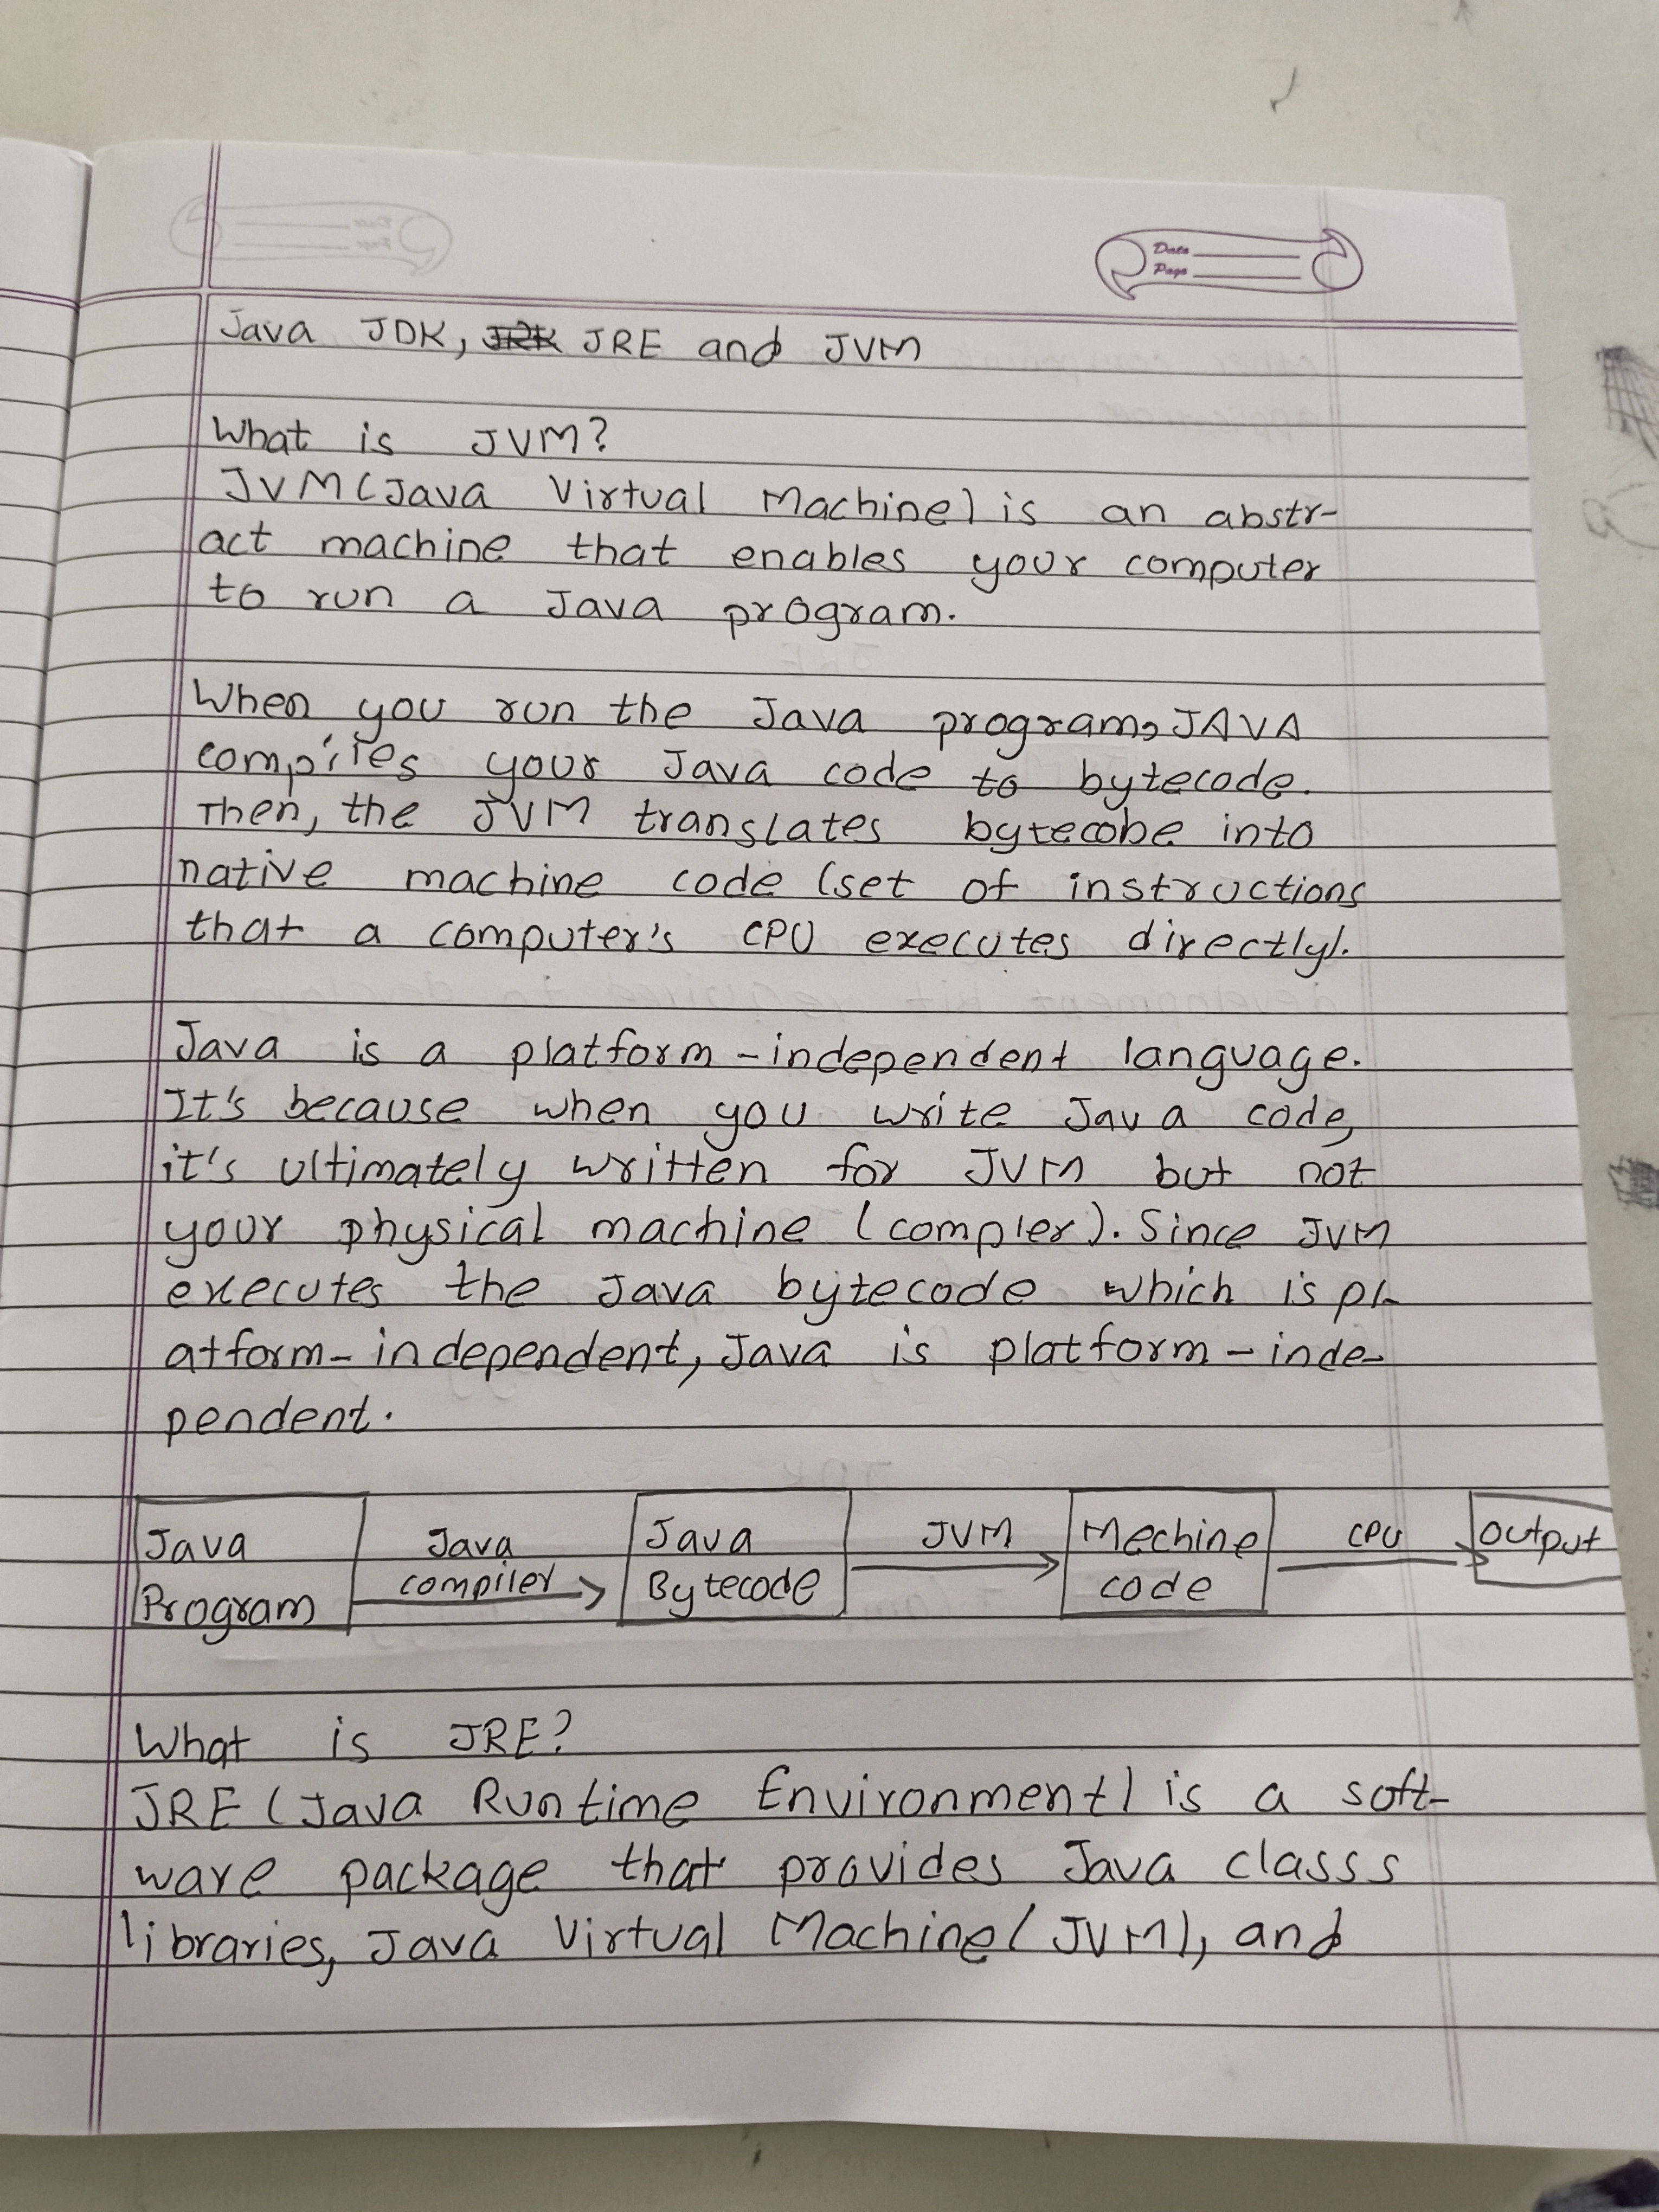 Date
Page
Java JDK, JRE and JVM
What is JVM?
JVM (Java Virtual Machine) is an abstr-
act machine that enables your computer
to run a Java program.
When you run the Java program, JAVA
compiles your Java code to bytecode.
Then, the JVM translates bytecobe into
native machine code (set of instructions
that a computer's CPU executes directly).
Java is a platform-independent language.
It's because when you write Java code,
it's ultimately written for JVM but not
your physical machine (compler). Since JVM
executes the Java bytecode which is pl-
atform-independent, Java is platform-inde-
pendent.
Java Program
Java compiler
Java Bytecode
JVM
Mechine code
CPU
output
What is JRE?
JRE (Java Runtime Environment) is a soft-
ware package that provides Java classs
libraries, Java Virtual Machine (JVM), and